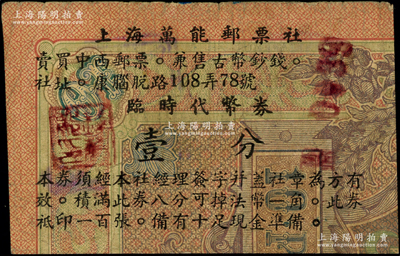 上海萬能郵票社
賣買中西郵票。兼售古幣鈔錢。
社址：康腦脫路108弄78號
臨時代幣券
壹 分
本券須經本社經理簽字并蓋社章為方有
效。積滿此券八分可掉法幣一角。此券
祗印一百張。備有十足現金準備。
上海陽明拍賣